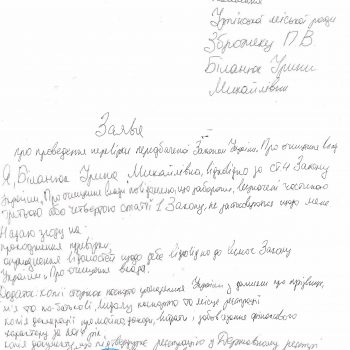 міської ради
Зброжеку П.В.
Біланич Ірини
Михайлівни
Заява
про проведення перевірки, передбаченої Законом України „Про очищення влади
Я, Біланич Ірина Михайлівна, відповідно до ст.4 Закону
України „Про очищення влади" повідомляю, що заборони, визначені частиною
третьою або четвертою статті 1 Закону, не застосовуються щодо мене
Надаю згоду на:
проходження перевірки
оприлюднення відомостей щодо себе відповідно до вимог Закону
України „Про очищення влади".
Додатки: копії сторінок паспорта громадянина України з даними про прізвище,
ім'я та по-батькові, видачу паспорта та місце реєстрації
копія декларації про майно, доходи, витрати і зобов'язання фінансового
характеру за рік
копія документа, що підтверджує реєстрацію у Державному реєстрі